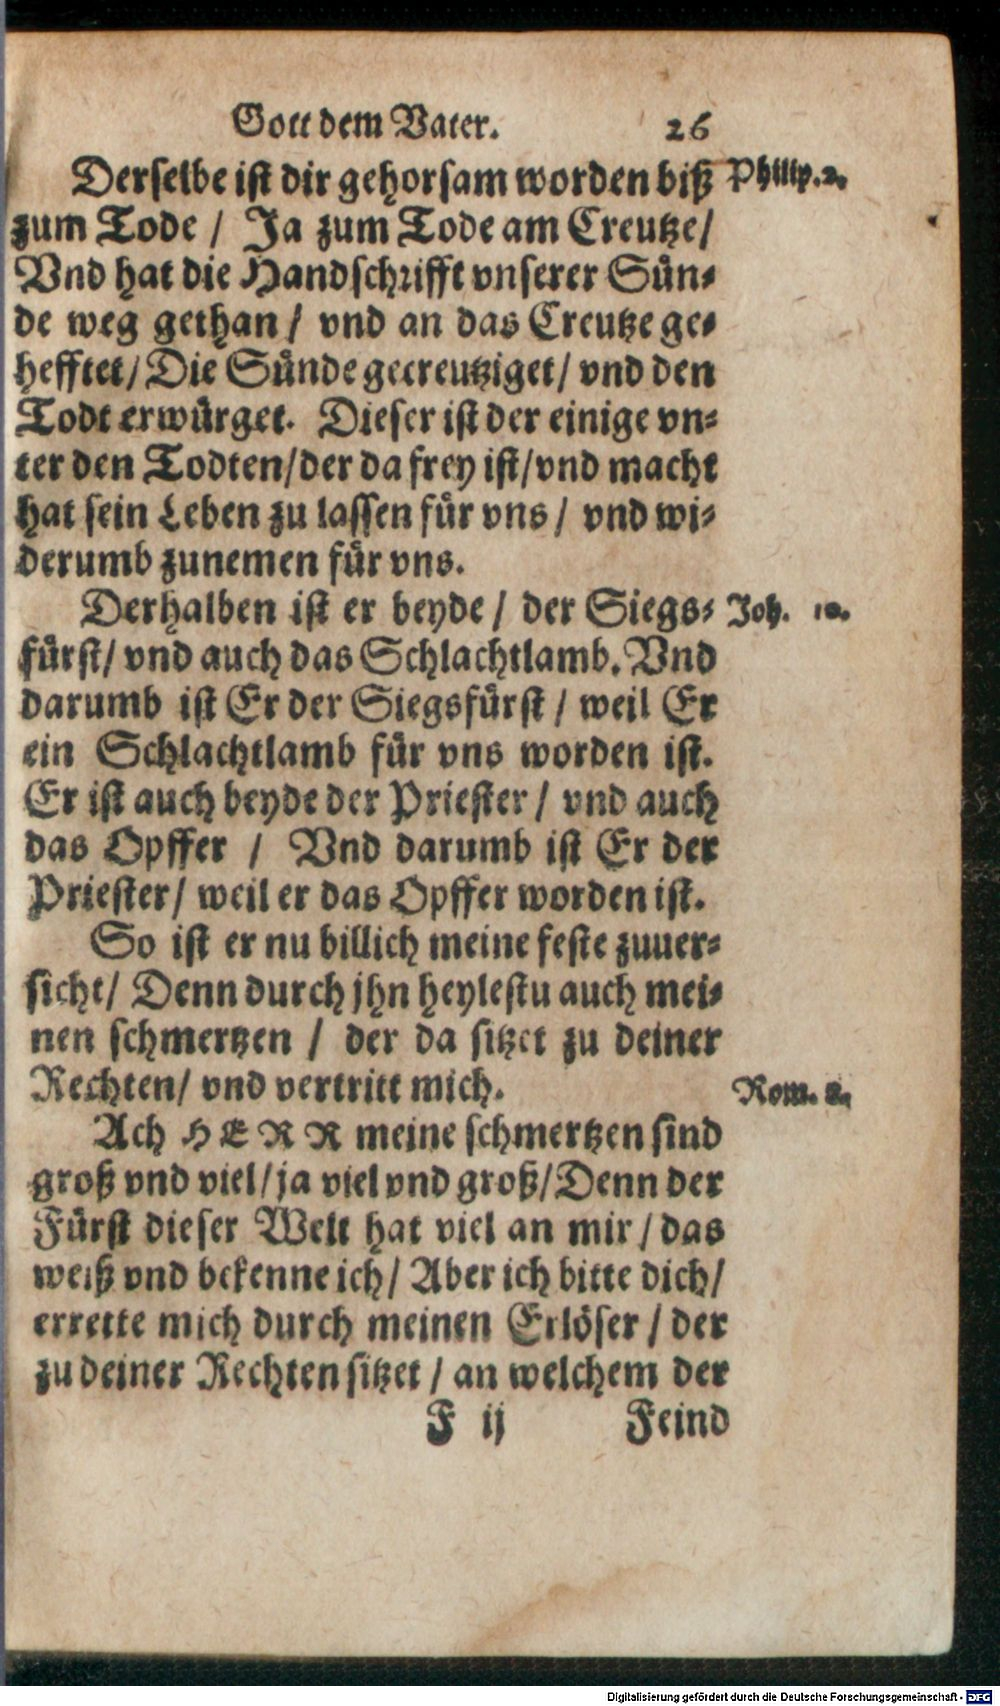 Gott dem Vater. 26
Derselbe ist dir gehorsam worden biß Philip. 2.
zum Tode / Ja zum Tode am Creutze /
Vnd hat die Handschrifft vnserer Sün-
de weg gethan / vnd an das Creutze ge-
hefftet / Die Sünde gecreutziget / vnd den
Todt erwürget. Dieser ist der einige vn-
ter den Todten / der da frey ist / vnd macht
hat sein Leben zu lassen für vns / vnd wi-
derumb zunemen für vns.
Derhalben ist er beyde / der Siegs- Joh. 10.
fürst / vnd auch das Schlachtlamb. Vnd
darumb ist Er der Siegsfürst / weil Er
ein Schlachtlamb für vns worden ist.
Er ist auch beyde der Priester / vnd auch
das Opffer / Vnd darumb ist Er der
Priester / weil er das Opffer worden ist.
So ist er nu billich meine feste zuuer-
sicht / Denn durch jhn heylestu auch mei-
nen schmertzen / der da sitzet zu deiner
Rechten / vnd vertritt mich. Rom. 8.
Ach HERR meine schmertzen sind
groß vnd viel / ja viel vnd groß / Denn der
Fürst dieser Welt hat viel an mir / das
weiß vnd bekenne ich / Aber ich bitte dich /
errette mich durch meinen Erlöser / der
zu deiner Rechten sitzet / an welchem der
F ij Feind
Digitalisierung gefördert durch die Deutsche Forschungsgemeinschaft - DFG